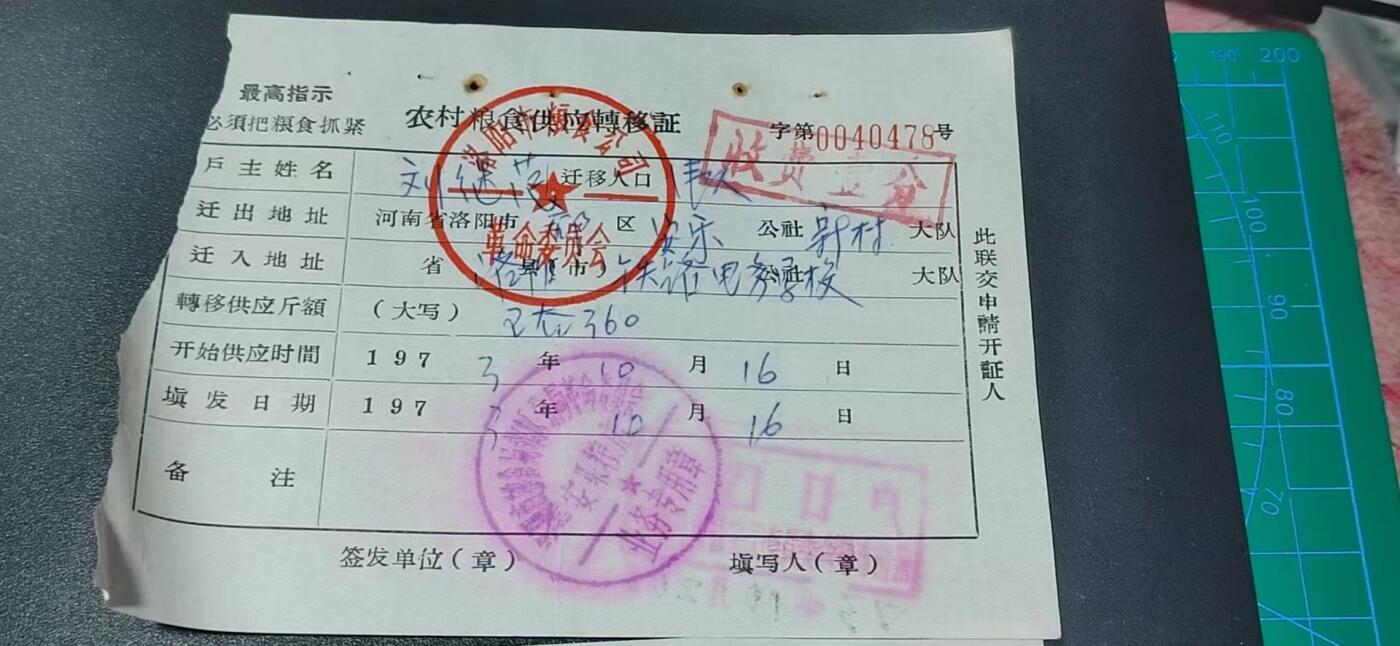 最高指示
必須把粮食抓紧
农村粮食供应轉移証
字第0040478号
收费壹分
洛阳市粮食公司
革命委员会
戶主姓名 刘 迁移人口
迁出地址 河南省洛阳市 区 安乐 公社 新村 大队
迁入地址 省 洛阳 市 铁路电务学校 公社 大队
轉移供应斤額 (大写) 360
开始供应时間 197 3 年 10 月 16 日
塡发日期 197 3 年 10 月 16 日
备注
安乐
业务专用章
户口
签发单位(章) 塡写人(章)
此联交申請开証人
190 200
110
100
90
80
70